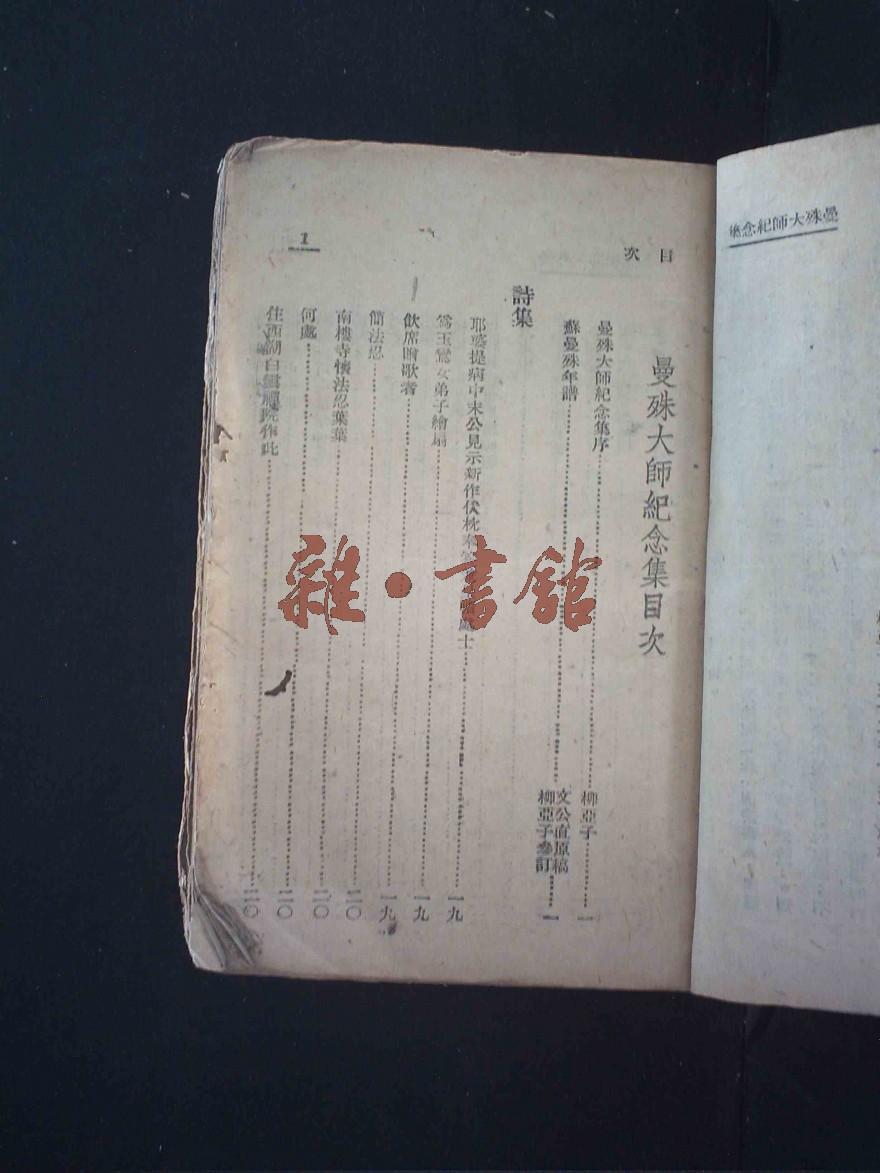 曼殊大師紀念集
目次
曼殊大師紀念集目次
曼殊大師紀念集序 柳亞子 一
蘇曼殊年譜 文公直原稿 柳亞子參訂 一
詩集
耶婆提病中末公見示新作伏枕奉 處士 一九
爲玉鸞女弟子繪扇 一九
飲席贈歌者 一九
簡法忍 二〇
南樓寺懷法忍葉葉 二〇
何處 二〇
住西湖白雲禪院作此 二〇
1
雜·書館